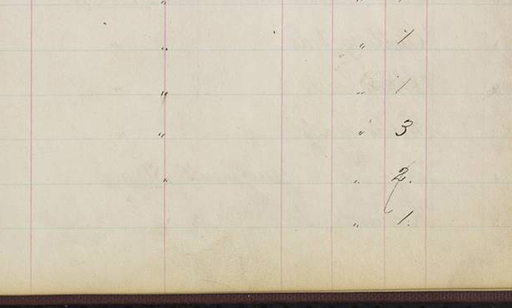 " "
" " 1
" " 1
" " 3
" " 2.
" " 1.